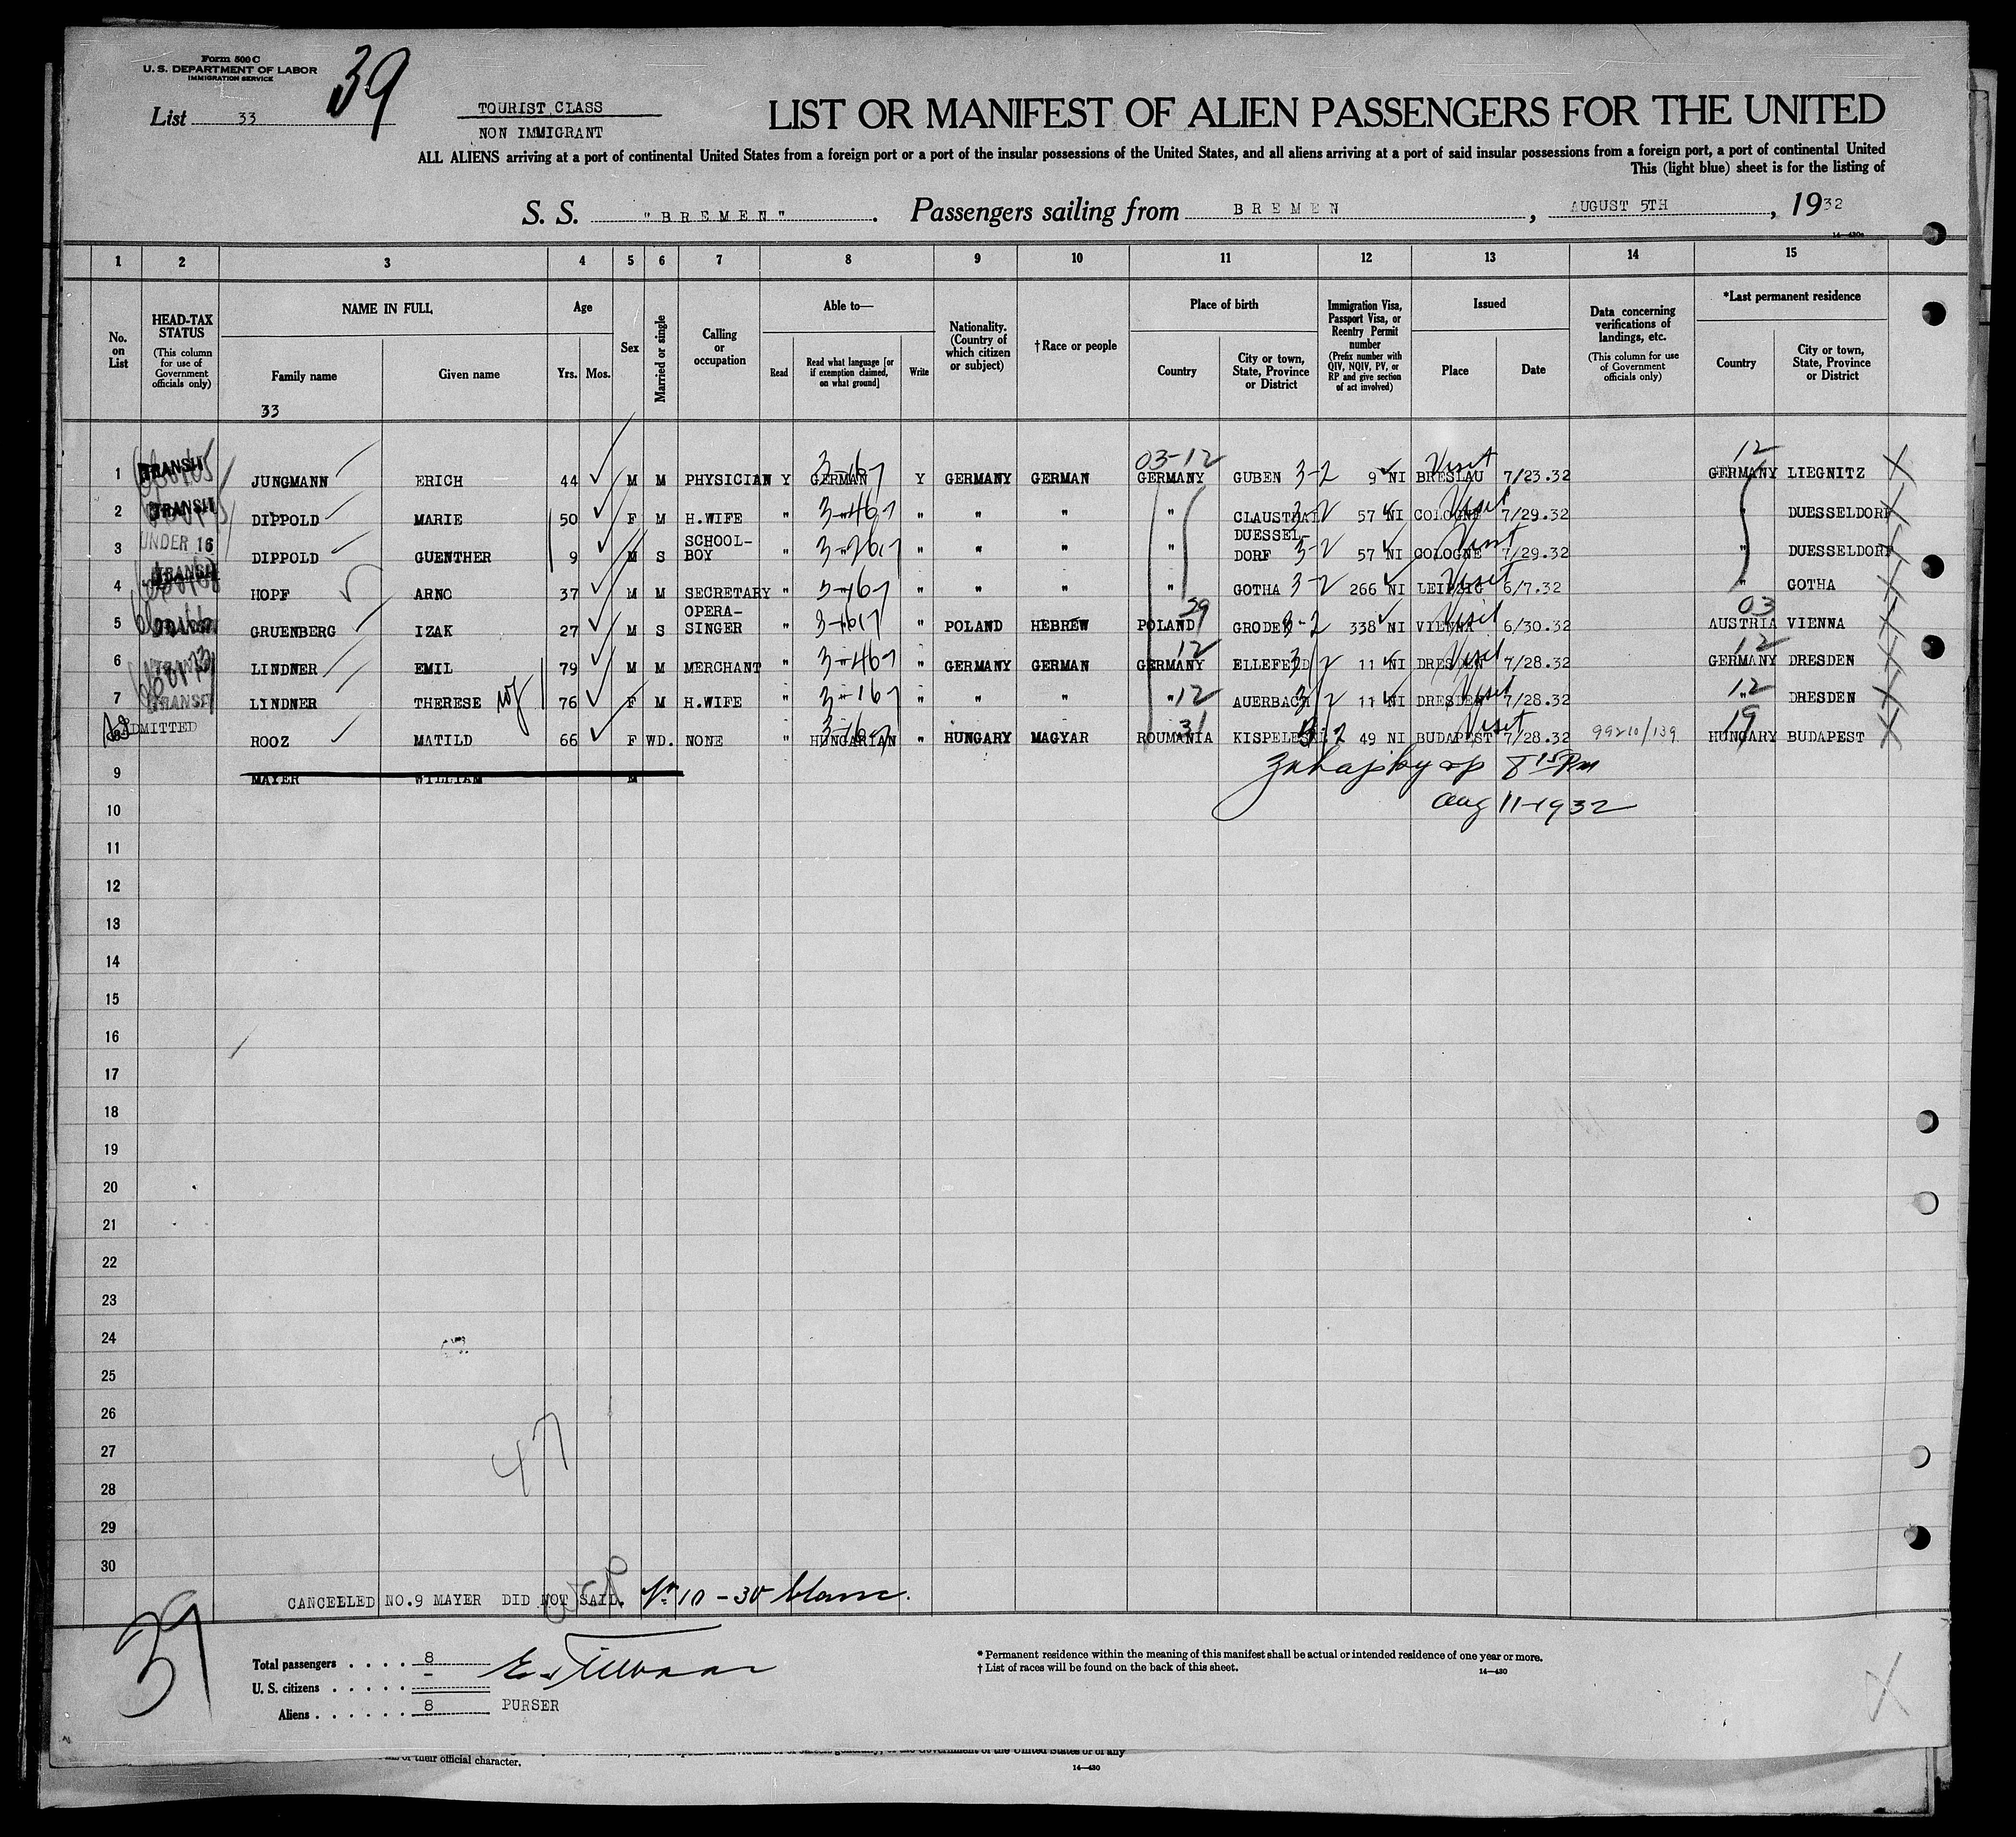 Form 500 C
U. S. DEPARTMENT OF LABOR
IMMIGRATION SERVICE
39
List 33
TOURIST CLASS
NON IMMIGRANT
LIST OR MANIFEST OF ALIEN PASSENGERS FOR THE UNITED
ALL ALIENS arriving at a port of continental United States from a foreign port or a port of the insular possessions of the United States, and all aliens arriving at a port of said insular possessions from a foreign port, a port of continental United
This (light blue) sheet is for the listing of
S. S. "BREMEN". Passengers sailing from BREMEN, AUGUST 5TH, 1932
14—430a
1 2 3 4 5 6 7 8 9 10 11 12 13 14 15
No. on List
HEAD-TAX STATUS (This column for use of Government officials only)
NAME IN FULL
Family name
Given name
Age
Yrs. Mos.
Sex
Married or single
Calling or occupation
Able to—
Read
Read what language [or if exemption claimed, on what ground]
Write
Nationality. (Country of which citizen or subject)
†Race or people
Place of birth
Country
City or town, State, Province or District
Immigration Visa, Passport Visa, or Reentry Permit number (Prefix number with QIV, NQIV, PV, or RP and give section of act involved)
Issued
Place
Date
Data concerning verifications of landings, etc. (This column for use of Government officials only)
*Last permanent residence
Country
City or town, State, Province or District
33
1 TRANSIT JUNGMANN ERICH 44 M M PHYSICIAN Y GERMAN Y GERMANY GERMAN 03-12 GERMANY GUBEN 3-2 9 NI BRESLAU Visit 7/23.32 12 GERMANY LIEGNITZ X
2 TRANSIT DIPPOLD MARIE 50 F M H.WIFE " " " " " " CLAUSTHAL 3-2 57 NI COLOGNE Visit 7/29.32 " DUESSELDORF X
3 UNDER 16 DIPPOLD GUENTHER 9 M S SCHOOL-BOY " " " " " " DUESSEL-DORF 3-2 57 NI COLOGNE Visit 7/29.32 " DUESSELDORF X
4 TRANSIT HOPF ARNO 37 M M SECRETARY " " " " " " GOTHA 3-2 266 NI LEIPZIG Visit 6/7.32 " GOTHA X
5 GRUENBERG IZAK 27 M S OPERA-SINGER " " " POLAND HEBREW POLAND 338 NI VIENNA Visit 6/30.32 03 AUSTRIA VIENNA X
6 LINDNER EMIL 79 M M MERCHANT " " " GERMANY GERMAN 12 GERMANY ELLEFELD 11 NI DRESDEN Visit 7/28.32 12 GERMANY DRESDEN X
7 TRANSIT LINDNER THERESE wf 76 F M H.WIFE " " " " " " 12 AUERBACH 11 NI DRESDEN Visit 7/28.32 12 " DRESDEN X
8 ADMITTED ROOZ MATILD 66 F WD. NONE " HUNGARIAN " HUNGARY MAGYAR 31 ROUMANIA 49 NI BUDAPEST Visit 7/28.32 99210/139 19 HUNGARY BUDAPEST X
9 MAYER WILLIAM M
815 Pm
10 Aug 11-1932
11
12
13
14
15
16
17
18
19
20
21
22
23
24
25
26
27
47
28
29
30
CANCELLED NO.9 MAYER DID NOT SAIL. No 10-30 blanc.
39
Total passengers . . . . 8
U. S. citizens . . . . . –
Aliens . . . . . . 8
PURSER
* Permanent residence within the meaning of this manifest shall be actual or intended residence of one year or more.
† List of races will be found on the back of this sheet.
14—430
X
of their official character.
the Government of the United States or of any
14—430